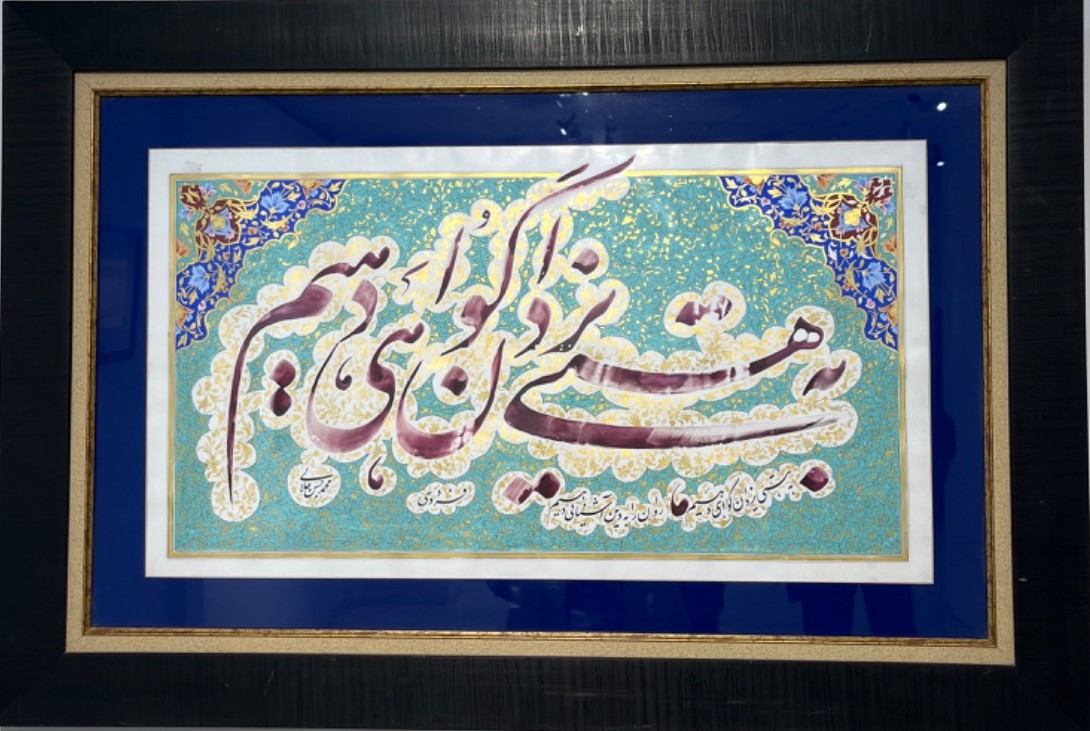 به هستی یزدان گُواهی دهیم
به هستی یزدان گواهی دهیم روان را به دین آشنائی دهیم
فردوسی